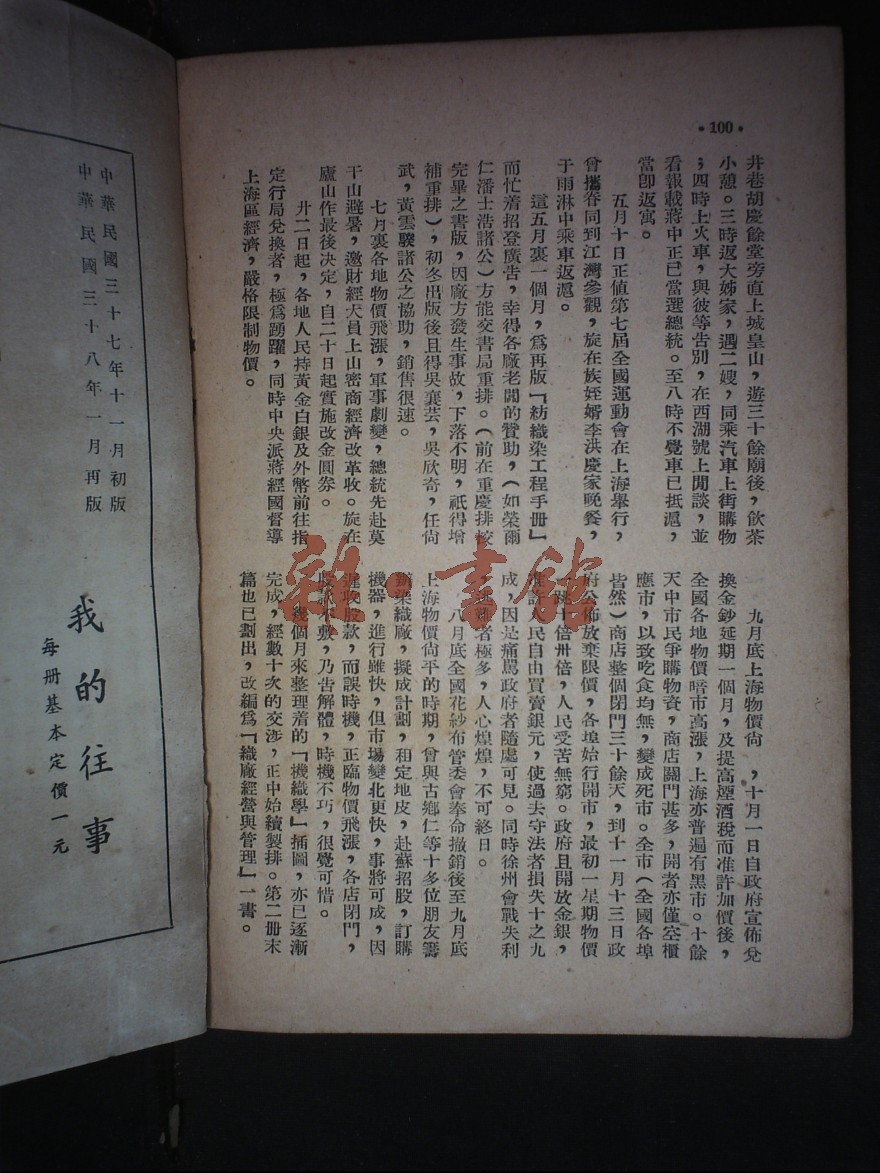 •100•
井巷胡慶餘堂旁直上城皇山，遊三十餘廟後，飲茶
小憩。三時返大姊家，遇二嫂，同乘汽車上街購物
；四時上火車，與彼等告別，在西湖號上閒談，並
看報載蔣中正已當選總統。至八時不覺車已抵滬，
當卽返寓。
五月十日正值第七屆全國運動會在上海舉行，
曾攜眷同到江灣參觀，旋在族姪婿李洪慶家晚餐，
于雨淋中乘車返滬。
這五月裏一個月，爲再版『紡織染工程手册』
而忙着招登廣告，幸得各廠老闆的贊助，（如榮爾
仁潘士浩諸公）方能交書局重排。（前在重慶排校
完畢之書版，因廠方發生事故，下落不明，祇得增
補重排），初冬出版後且得吳襄芸，吳欣奇，任尙
武，黃雲騤諸公之協助，銷售很速。
七月裏各地物價飛漲，軍事劇變，總統先赴莫
干山避暑，邀財經大員上山密商經濟改革收。旋在
廬山作最後決定，自二十日起實施改金圓券。
廿二日起，各地人民持黃金白銀及外幣前往指
定行局兌換者，極爲踴躍，同時中央派蔣經國督導
上海區經濟，嚴格限制物價。
九月底上海物價尙 ，十月一日自政府宣佈兌
換金鈔延期一個月，及提高煙酒稅而准許加價後，
全國各地物價暗市高漲，上海亦普遍有黑市。十餘
天中市民爭購物資，商店關門甚多，開者亦僅空櫃
應市，以致吃食均無，變成死市。全市（全國各埠
皆然）商店整個閉門三十餘天，到十一月十三日政
府公佈放棄限價，各埠始行開市，最初一星期物價
一跳十倍卅倍，人民受苦無窮。政府且開放金銀，
准許人民自由買賣銀元，使過去守法者損失十之九
成，因是痛罵政府者隨處可見。同時徐州會戰失利
，逃難者極多，人心煌煌，不可終日。
八月底全國花紗布管委會奉命撤銷後至九月底
上海物價尙平的時期，曾與古鄉仁等十多位朋友籌
辦染織廠，擬成計劃，租定地皮，赴蘇招股，訂購
機器，進行雖快，但市場變化更快，事將可成，因
遲收股款，而誤時機，正臨物價飛漲，各店閉門，
股款不敷，乃告解體，時機不巧，很覺可惜。
幾個月來整理着的「機織學」插圖，亦已逐漸
完成，經數十次的交涉，正中始續製排。第二册末
篇也已劃出，改編爲『織廠經營與管理』一書。
中華民國三十七年十一月初版
中華民國三十八年一月再版
我的往事
每册基本定價一元